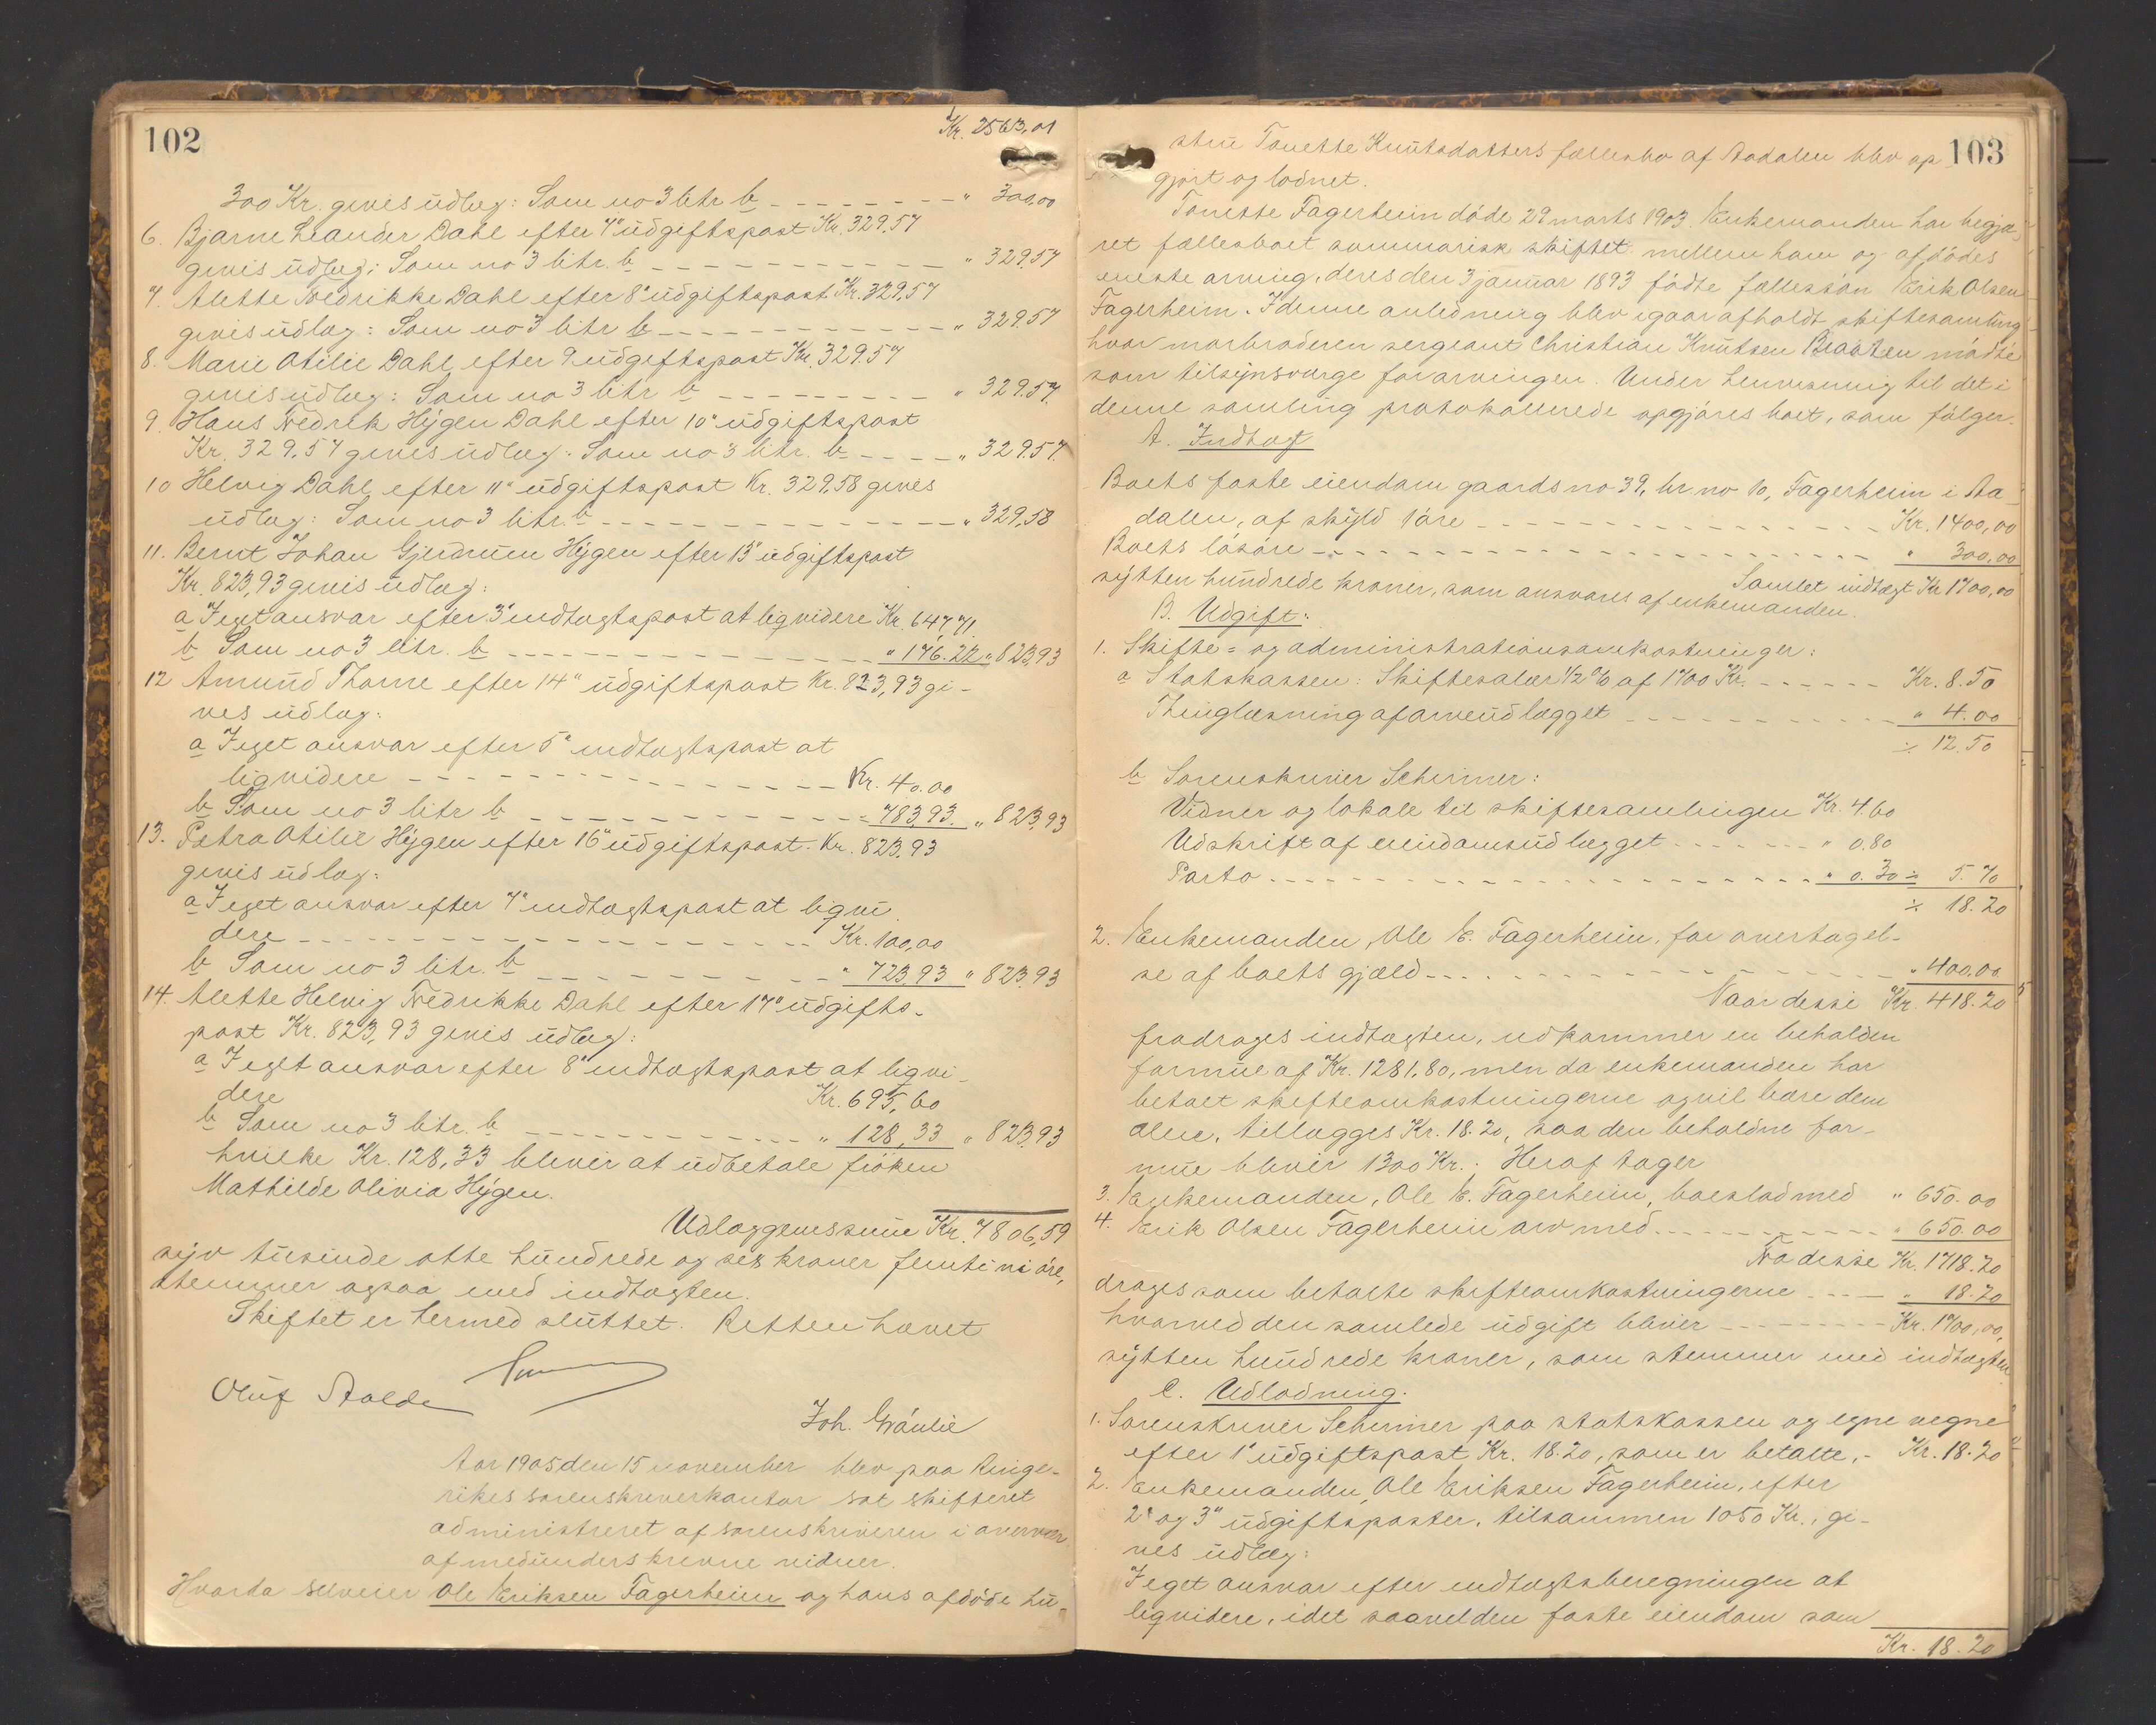 102
Kr. 2563,01
300 Kr. gives udlæg: Som no 3 litr b - - - - - - - " 300,00
6. Bjarne Leander Dahl efter 7" udgiftspost Kr. 329,57
gives udlæg: Som no 3 litr. b - - - - - - - - - - - " 329,57
7. Alette Fredrikke Dahl efter 8" udgiftspost Kr. 329,57
gives udlæg: Som no 3 litr b - - - - - - - - - - - " 329,57
8. Marie Otilie Dahl efter 9 udgiftspost Kr. 329.57
gives udlæg: Som no 3 litr b - - - - - - - - - " 329.57.
9. Hans Fredrik Hÿgen Dahl efter 10" udgiftspost
Kr. 329,57 gives udlæg: Som no 3 litr. b - - - - " 329.57.
10 Helvig Dahl efter 11" udgiftspost Kr. 329,58 gives
udlæg: Som no 3 litr. b - - - - - - - - - - - - - - " 329,58
11. Bernt Johan Gjerdrum Hÿgen efter 13" udgiftspost
Kr. 823,93 gives udlæg:
a I eget ansvar efter 3" indtægtspost at liqvidere Kr. 647,71.
b Som no 3 litr. b - - - - - - - - - - - - - - - " 176.22 " 823,93
12 Amund Thorne efter 14" udgiftspost Kr. 823,93 gi-
ves udlæg:
a I eget ansvar efter 5" indtægtspost at
liqvidere - - - - - - - - - - - - - - - Kr. 40.00
b Som no 3 litr b - - - - - - - - - - - - - " 783,93. " 823,93
13. Petra Otilie Hÿgen efter 16" udgiftspost. Kr. 823,93
gives udlæg:
a I eget ansvar efter 7" indtægtspost at liqvi
dere - - - - - - - - - - - - - - - - - - Kr. 100,00
b Som no 3 litr. b - - - - - - - - - - " 723,93 " 823,93
14. Alette Helvig Fredrikke Dahl efter 17" udgifts-
post Kr. 823,93 gives udlæg:
a I eget ansvar efter 8" indtægtspost at liqvi-
dere Kr. 695,60
b Som no 3 litr. b - - - - - - - - - - - " 128,33 " 823,93
hvilke Kr. 128,33 bliver at udbetale frøken
Mathilde Olivia Hÿgen.
Udlæggenes sum Kr. 7806,59
sÿv tusinde otte hundrede og sex kroner femti ni øre,
stemmer ogsaa med indtægten.
Skiftet er hermed sluttet. Retten hævet
Oluf Stalde
Joh. Graulie
Aar 1905 den 15 november blev paa Ringe-
rikes sorenskriverkontor sat skifteret
administreret af sorenskriveren i overvær
af medunderskrevne vidner.
Hvorda selveier Ole Eriksen Fagerheim og hans afdøde hu-
103
stru Tonette Knutsdatters fællesbo af Aadalen blev op
gjort og lodnet.
Tonette Fagerheim døde 29 marts 1903. Enkemanden har begjæ
ret fællesboet summarisk skiftet mellem ham og afdødes
eneste arving, deres den 3 januar 1893 fødte fællessøn Erik Olsen
Fagerheim. I denne anledning blev igaar afholdt skiftesamling
hvor morbroderen sergeant Christian Knutsen Braaten mødte
som tilsÿnsværge for arvingen. Under henvisning til det i
denne samling protokollerede opgjøres boet, som følger.
A. Indtægt
Boets faste eiendom gaards no 39, br no 10, Fagerheim i Aa
dalen, af skÿld 1 øre - - - - - - - - - - - - - - Kr. 1400,00
Boets løsøre - - - - - - - - - - - - - - - - - - - " 300,00
Samlet indtægt Kr 1700,00
sÿtten hundrede kroner, som ansvares af enkemanden.
B. Udgift:
1. Skifte = og administrationsomkostninger:
a Statskassen: Skiftesalær 1/2 % af 1700 Kr. - - - - - - Kr. 8.50
Thinglæsning af arveudlægget - - - - - - - - - " 4.00
÷ 12.50
b Sorenskriver Schirmer:
Vidner og lokale til skiftesamlingen Kr. 4.60
Udskrift af eiendomsudlægget - - - - - - - " 0.80
Porto - - - - - - - - - - - - - - - - - - - - " 0.30 ÷ 5.70
÷ 18.20
2. Enkemanden, Ole E. Fagerheim, for overtagel-
se af boets gjæld - - - - - - - - - - - - - - - - " 400.00
Naar disse Kr. 418.20
fradrages indtægten, udkommer en beholden
formue af Kr. 1281,80, men da enkemanden har
betalt skifteomkostningerne og vil bære dem
alene, tillægges Kr. 18.20, saa den beholdne for-
mue blivir 1300 Kr. Heraf tager
3. Enkemanden, Ole E. Fagerheim, boeslod med " 650.00
4. Erik Olsen Fagerheim arv med - - - - - - - - - " 650.00
Fra disse Kr. 1718.20
drages som betalte skifteomkostningerne - - - - " 18.20
hvorved den samlede udgift bliver - - - - - - - - Kr. 1700,00,
sÿtten hundrede kroner, som stemmer med indtægten
C. Udlodning.
1. Sorenskriver Schirmer paa statskassen og egne vegne
efter 1" udgiftspost Kr. 18.20, som er betalte, - Kr. 18.20
2. Enkemanden, Ole Eriksen Fagerheim, efter
2" og 3" udgiftsposter, tilsammen 1050 Kr., gi-
ves udlæg:
I eget ansvar efter indtægtsberegningen at
liqvidere, idet saavel den faste eiendom som
Kr. 18.20